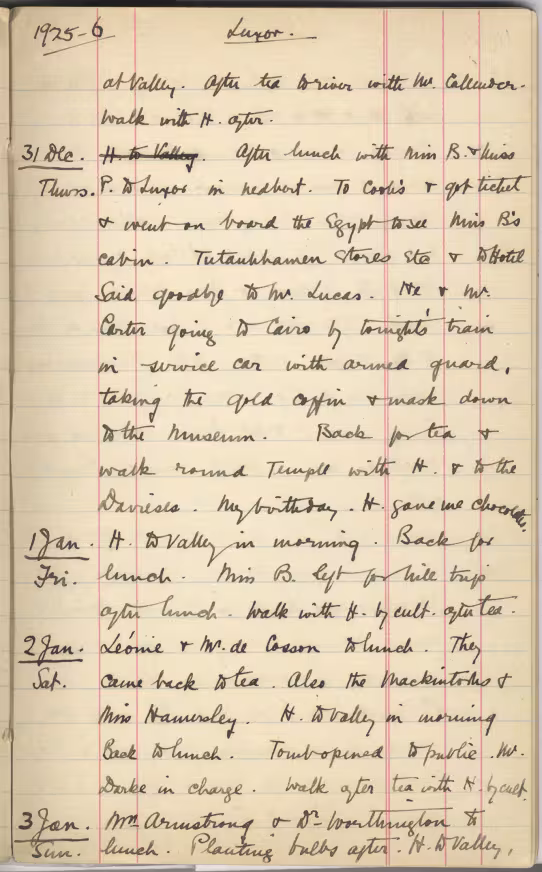 1925-6 Luxor.
at Valley. After tea to river with Mr. Callender.
Walk with H. after.
31 Dec. H. to Valley. After lunch with Miss B. & Miss
Thurs. P. to Luxor in nedbert. To Cook's & got ticket
& went on board the Egypt to see Miss B's
cabin. Tutankhamen Stores Etc & to Hotel
Said goodbye to Mr. Lucas. He & Mr.
Carter going to Cairo by tonight's train
in service car with armed guard,
taking the gold coffin & mask down
to the Museum. Back for tea &
walk round Temple with H. & to the
Davieses. My birthday. H. gave me chocolates.
1 Jan. H. to Valley in morning. Back for
Fri. lunch. Miss B. left for hill trip
after lunch. Walk with H. by cult. after tea.
2 Jan. Léonie & Mr. de Cosson to lunch. They
Sat. came back to tea. Also the Mackintoshs &
Miss Hamersley. H. to Valley in morning
Back to lunch. Tomb opened to public. Mr.
Darke in charge. Walk after tea with H. by cult.
3 Jan. Mrs Armstrong & Dr. Worthington to
Sun. lunch. Planting bulbs after. H. to Valley,